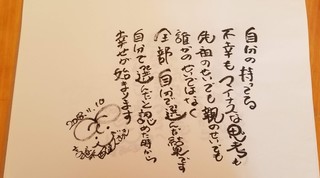 自分の持ってる
不幸もマイナスな思考も
先祖のせいでも親のせいでも
誰かのせいではなく
全部自分で選んだ結果です
自分で選んだと認めた時から
幸せが始まります